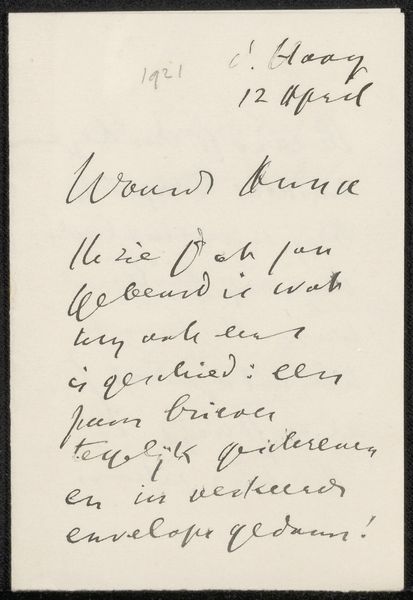 1921
d. Haag
12 April
Waarde Anna
Ik zie dat jou
gebeurd is wat
my ook eens
is geschied: een
paar brieven
tegelijk geschreven
en in verkeerde
enveloppe gedaan!